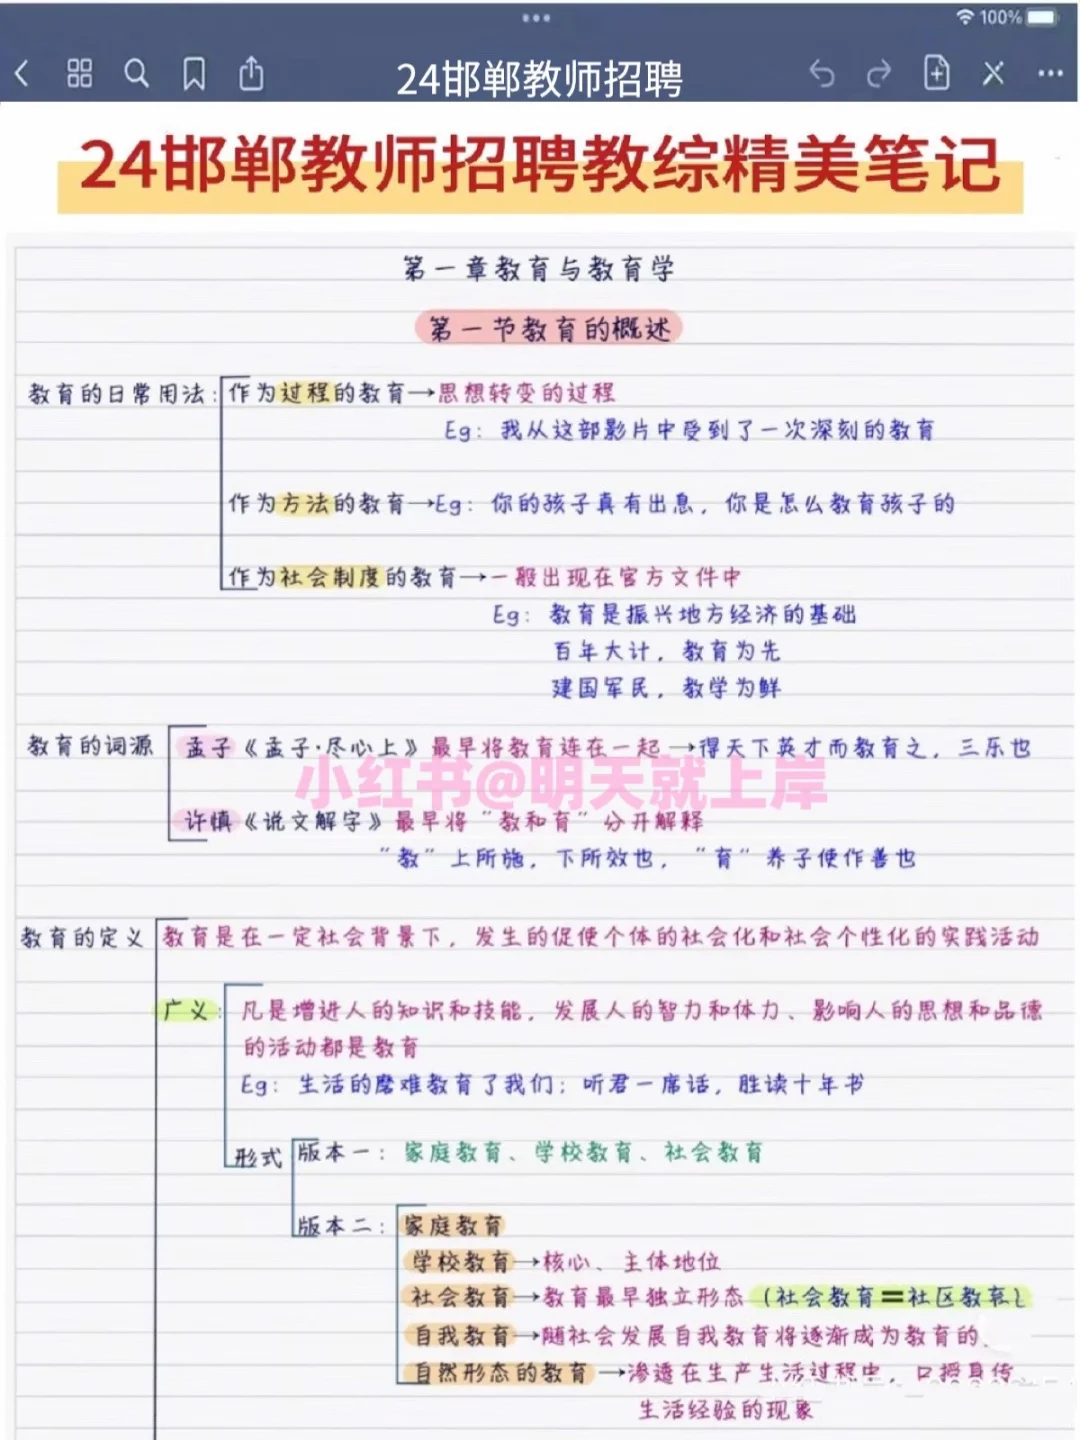 100%
24邯郸教师招聘
24邯郸教师招聘教综精美笔记
第一章教育与教育学
第一节教育的概述
教育的日常用法：作为过程的教育→思想转变的过程
Eg：我从这部影片中受到了一次深刻的教育
作为方法的教育→Eg：你的孩子真有出息，你是怎么教育孩子的
作为社会制度的教育→一般出现在官方文件中
Eg：教育是振兴地方经济的基础
百年大计，教育为先
建国军民，教学为鲜
教育的词源 孟子《孟子·尽心上》最早将教育连在一起→得天下英才而教育之，三乐也
小红书@明天就上岸
许慎《说文解字》最早将“教和育”分开解释
“教”上所施，下所效也，“育”养子使作善也
教育的定义 教育是在一定社会背景下，发生的促使个体的社会化和社会个性化的实践活动
广义：凡是增进人的知识和技能，发展人的智力和体力、影响人的思想和品德
的活动都是教育
Eg：生活的磨难教育了我们；听君一席话，胜读十年书
形式 版本一：家庭教育、学校教育、社会教育
版本二：家庭教育
学校教育→核心、主体地位
社会教育→教育最早独立形态（社会教育=社区教育）
自我教育→随社会发展自我教育将逐渐成为教育的
自然形态的教育→渗透在生产生活过程中，口授身传
生活经验的现象